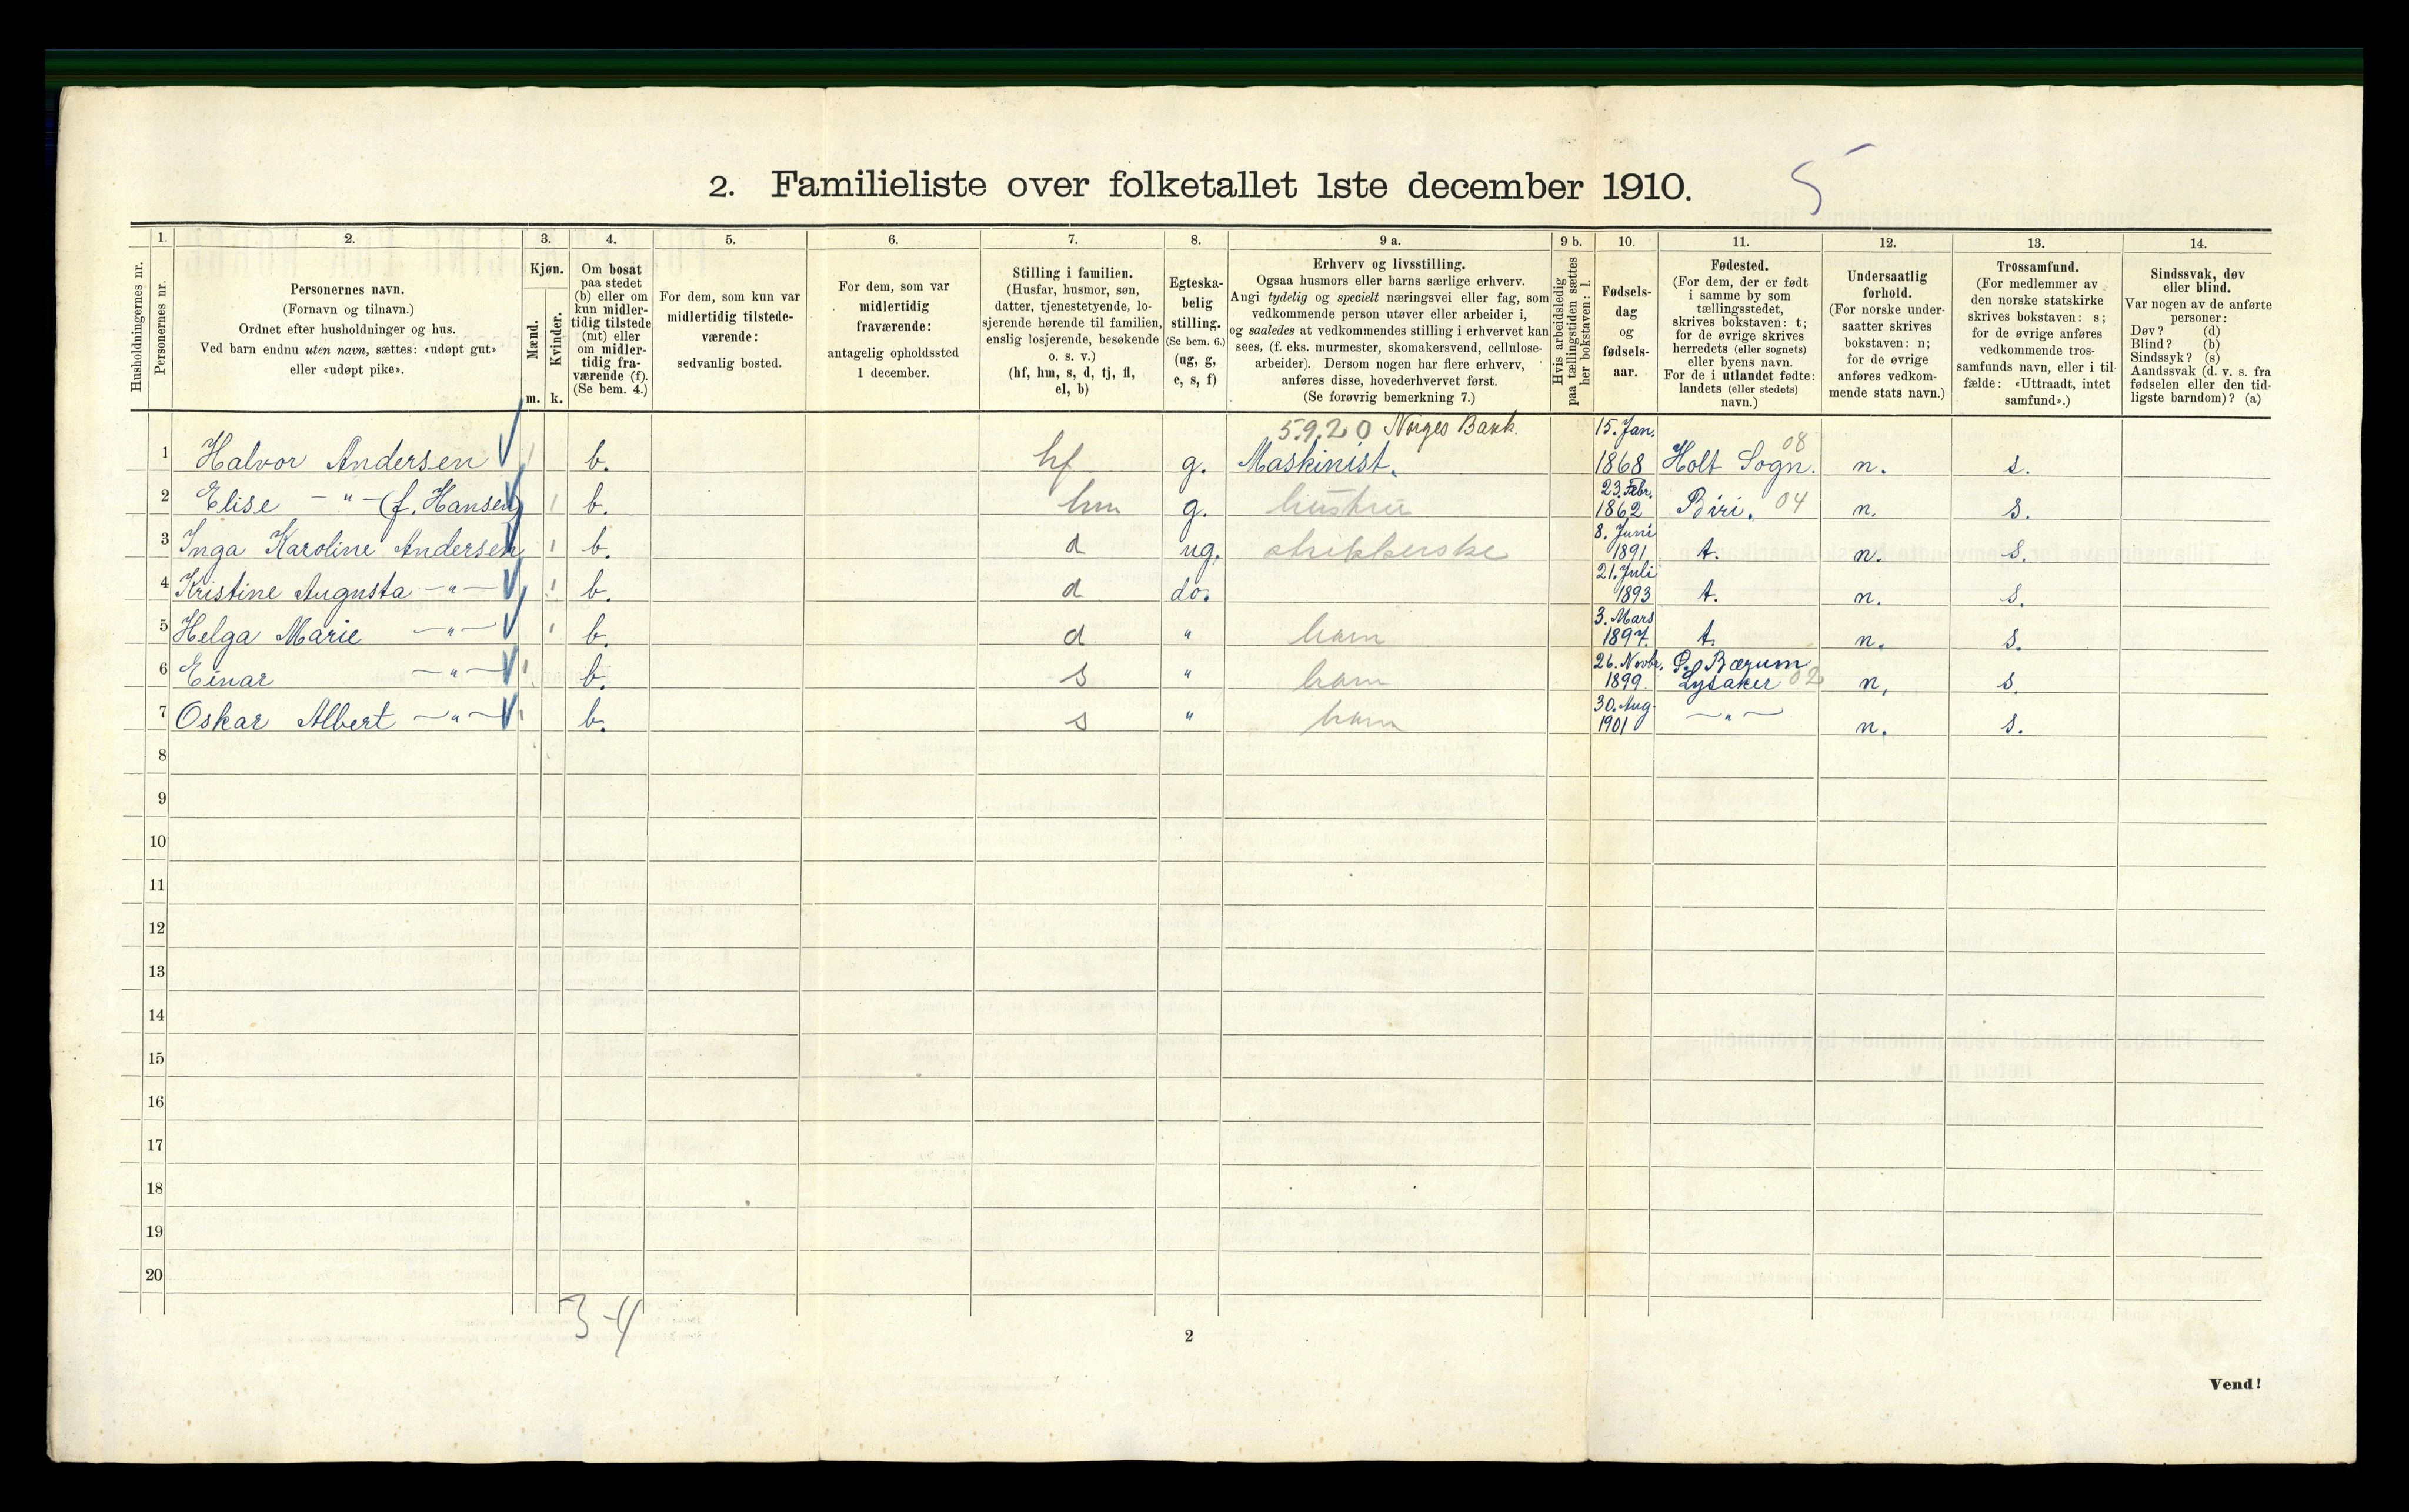 2. Familieliste over folketallet 1ste december 1910.
5
1. 2. 3. 4. 5. 6. 7. 8. 9 a. 9 b. 10. 11. 12. 13. 14.
Husholdningernes nr.
Personernes nr.
Personernes navn.
(Fornavn og tilnavn.)
Ordnet efter husholdninger og hus.
Ved barn endnu uten navn, sættes: «udøpt gut»
eller «udøpt pike».
Kjøn.
Mænd.
Kvinder.
m. k.
Om bosat
paa stedet
(b) eller om
kun midler-
tidig tilstede
(mt) eller
om midler-
tidig fra-
værende (f).
(Se bem. 4.)
For dem, som kun var
midlertidig tilstede-
værende:
sedvanlig bosted.
For dem, som var
midlertidig
fraværende:
antagelig opholdssted
1 december.
Stilling i familien.
(Husfar, husmor, søn,
datter, tjenestetyende, lo-
sjerende hørende til familien,
enslig losjerende, besøkende
o. s. v.)
(hf, hm, s, d, tj, fl,
el, b)
Egteska-
belig
stilling.
(Se bem. 6.)
(ug, g,
e, s, f)
Erhverv og livsstilling.
Ogsaa husmors eller barns særlige erhverv.
Angi tydelig og specielt næringsvei eller fag, som
vedkommende person utøver eller arbeider i,
og saaledes at vedkommendes stilling i erhvervet kan
sees, (f. eks. murmester, skomakersvend, cellulose-
arbeider). Dersom nogen har flere erhverv,
anføres disse, hovederhvervet først.
(Se forøvrig bemerkning 7.)
Hvis arbeidsledig
paa tællingstiden sættes
her bokstaven: l.
Fødsels-
dag
og
fødsels-
aar.
Fødested.
(For dem, der er født
i samme by som
tællingsstedet,
skrives bokstaven: t;
for de øvrige skrives
herredets (eller sognets)
eller byens navn.
For de i utlandet fødte:
landets (eller stedets)
navn.)
Undersaatlig
forhold.
(For norske under-
saatter skrives
bokstaven: n;
for de øvrige
anføres vedkom-
mende stats navn.)
Trossamfund.
(For medlemmer av
den norske statskirke
skrives bokstaven: s;
for de øvrige anføres
vedkommende tros-
samfunds navn, eller i til-
fælde: «Uttraadt, intet
samfund».)
Sindssvak, døv
eller blind.
Var nogen av de anførte
personer:
Døv? (d)
Blind? (b)
Sindssyk? (s)
Aandssvak (d. v. s. fra
fødselen eller den tid-
ligste barndom)? (a)
5.9.20 Norges Bank. 15. Jan. 08
1 Halvor Andersen 1 b. hf g. Maskinist. 1868 Holt Sogn. n. s.
23. Febr.
2 Elise — " — (f. Hansen) 1 b. hm g. hustru 1862 Biri. 04 n. s.
8. Juni
3 Inga Karoline Andersen 1 b. d ug. strikkerske 1891 t. n. s.
21. Juli
4 Kristine Augusta — " — 1 b. d do. 1893 t. n. s.
3. Mars
5 Helga Marie — " — 1 b. d " barn 1897. t. n. s.
26. Novbr. P. o Bærum
6 Einar — " — 1 b. s " barn 1899. Lysaker 02 n. s.
30. Aug.
7 Oskar Albert — " — 1 b. s " barn 1901 — " — n. s.
8
9
10
11
12
13
14
15
16
17
18
19
20
3-4
2
Vend!